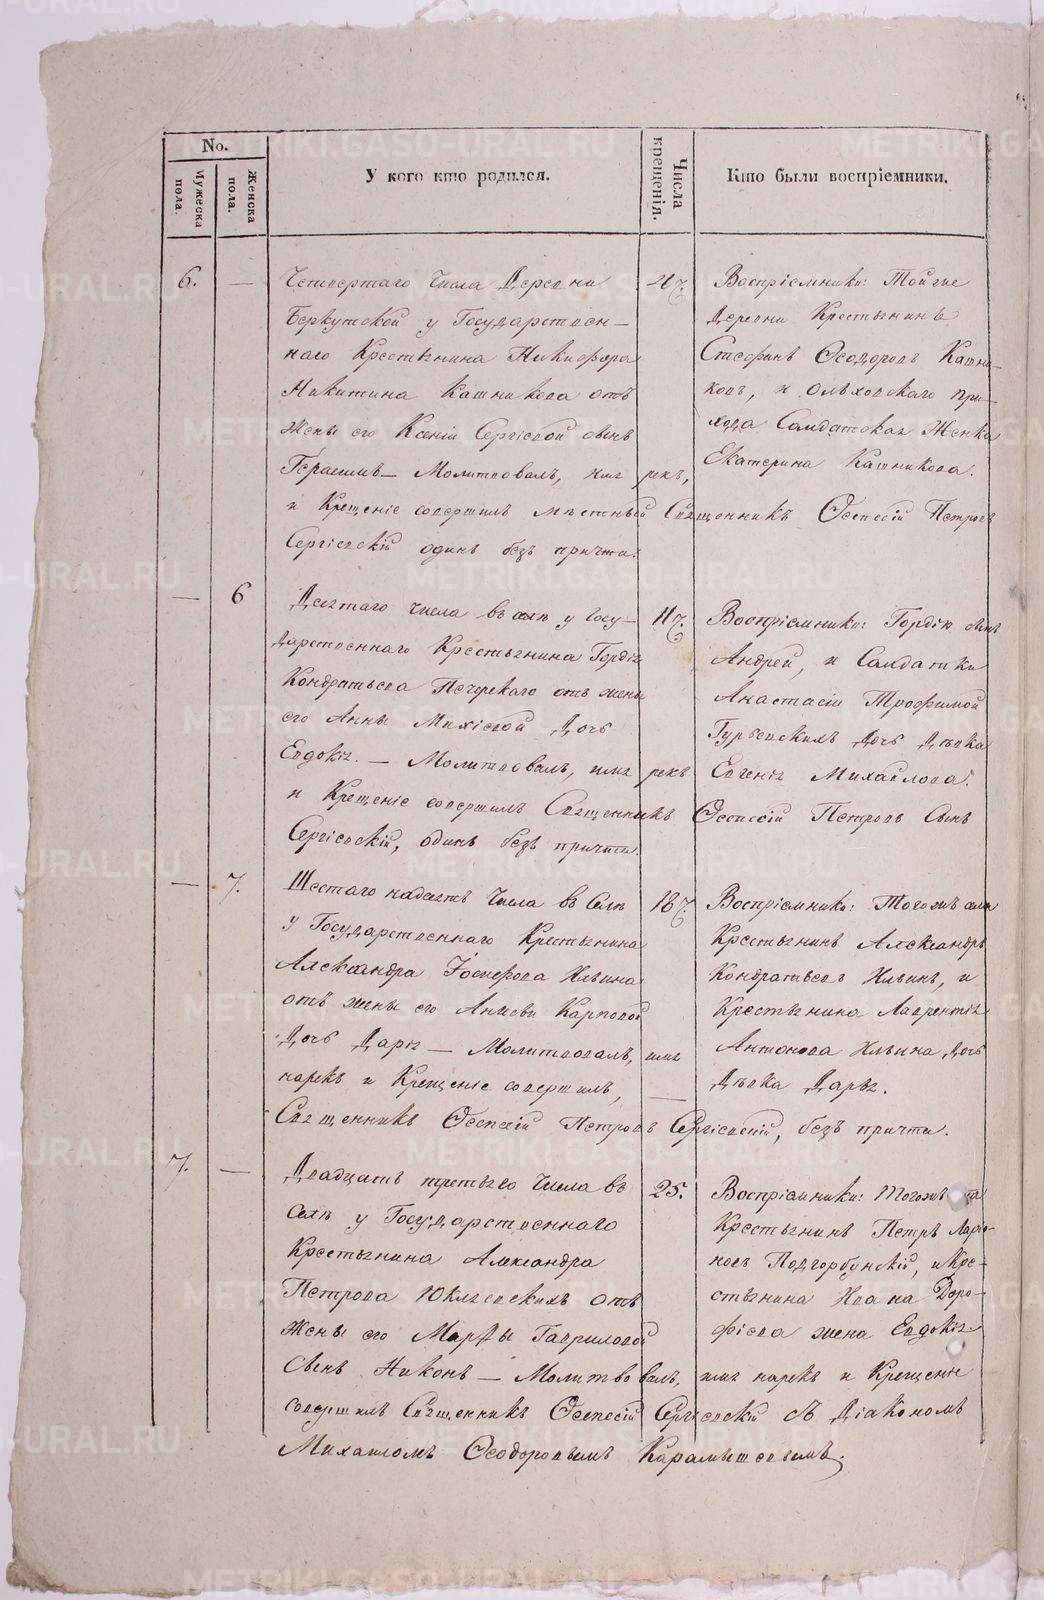 No.
Мужеска пола.
Женска пола.
У кого кто родился.
Числа крещенія.
Кто были воспріемники.
6.
—
Четвертаго числа Деревни
Беркутской у Государствен-
наго Крестьянина Никифора
Никитина Кашникова отъ
жены его Ксеніи Сергіевой сынъ
Герасимъ — Молитвовалъ, имя рекъ,
и Крещеніе совершилъ мѣстный Священникъ Евсевій Петровъ
Сергіевскій одинъ безъ причта.
Воспріемники: Той же
Деревни Крестьянинъ
Стефанъ Ѳеодоровъ Кашни-
ковъ, и Ольховскаго при-
хода Салдатская Женка
Екатерина Кашникова.
—
6
Десятаго числа въ селѣ у Госу-
дарственнаго Крестьянина Гордія
Кондратьева Печерскаго отъ жены
его Анны Михѣевой Дочь
Евдокія. — Молитвовалъ, имя рекъ
и Крещеніе совершилъ Священникъ Евсевій Петровъ Сынъ
Сергіевскій, одинъ безъ причта.
11
Воспріемники: Гордія сынъ
Андрей, и Салдатки
Анастасіи Трофимовой
Гурьевскихъ Дочь Дѣвка
Евгенія Михайлова.
—
7.
Шестаго надесять Числа въ Селѣ
у Государственнаго Крестьянина
Александра Іосифова Ильина
отъ жены его Анисьи Карповой
Дочь Дарія — Молитвовалъ, имя
нарекъ и Крещеніе совершилъ,
Священникъ Евсевій Петровъ Сергіевскій, безъ причта.
Воспріемники: Тогожъ села
Крестьянинъ Александръ
Кондратьевъ Ильинъ, и
Крестьянина Лаврентія
Антонова Ильина Дочь
Дѣвка Дарья.
7.
—
Двадцать третьяго Числа въ
селѣ у Государственнаго
Крестьянина Александра
Петрова Юкляевскихъ отъ
Жены его Марѳы Гавриловой
Сынъ Никонъ — Молитвовалъ, имя нарекъ и Крещеніе
совершилъ Священникъ Евсевій Сергіевскій съ Діакономъ
Михаиломъ Ѳеодоровымъ Карамышевымъ.
25.
Воспріемники: Тогожъ
Крестьянинъ Петръ Ларіо-
новъ Подгорбунскій, и Кре-
стьянина Ивана Доро-
фіева жена Евдокія
METRIKI.GASO-URAL.RU